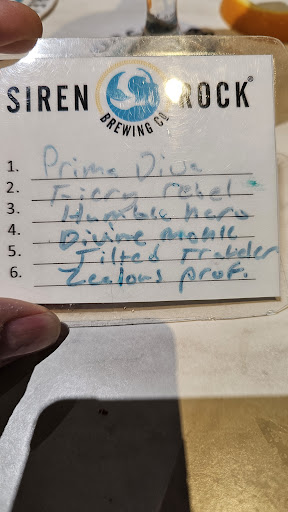 SIREN ROCK®
BREWING CO
1. Prima Diva
2. Fiery rebel
3. Humble hero
4. Divine Monk
5. Tilted Traveler
6. Zealous prof.